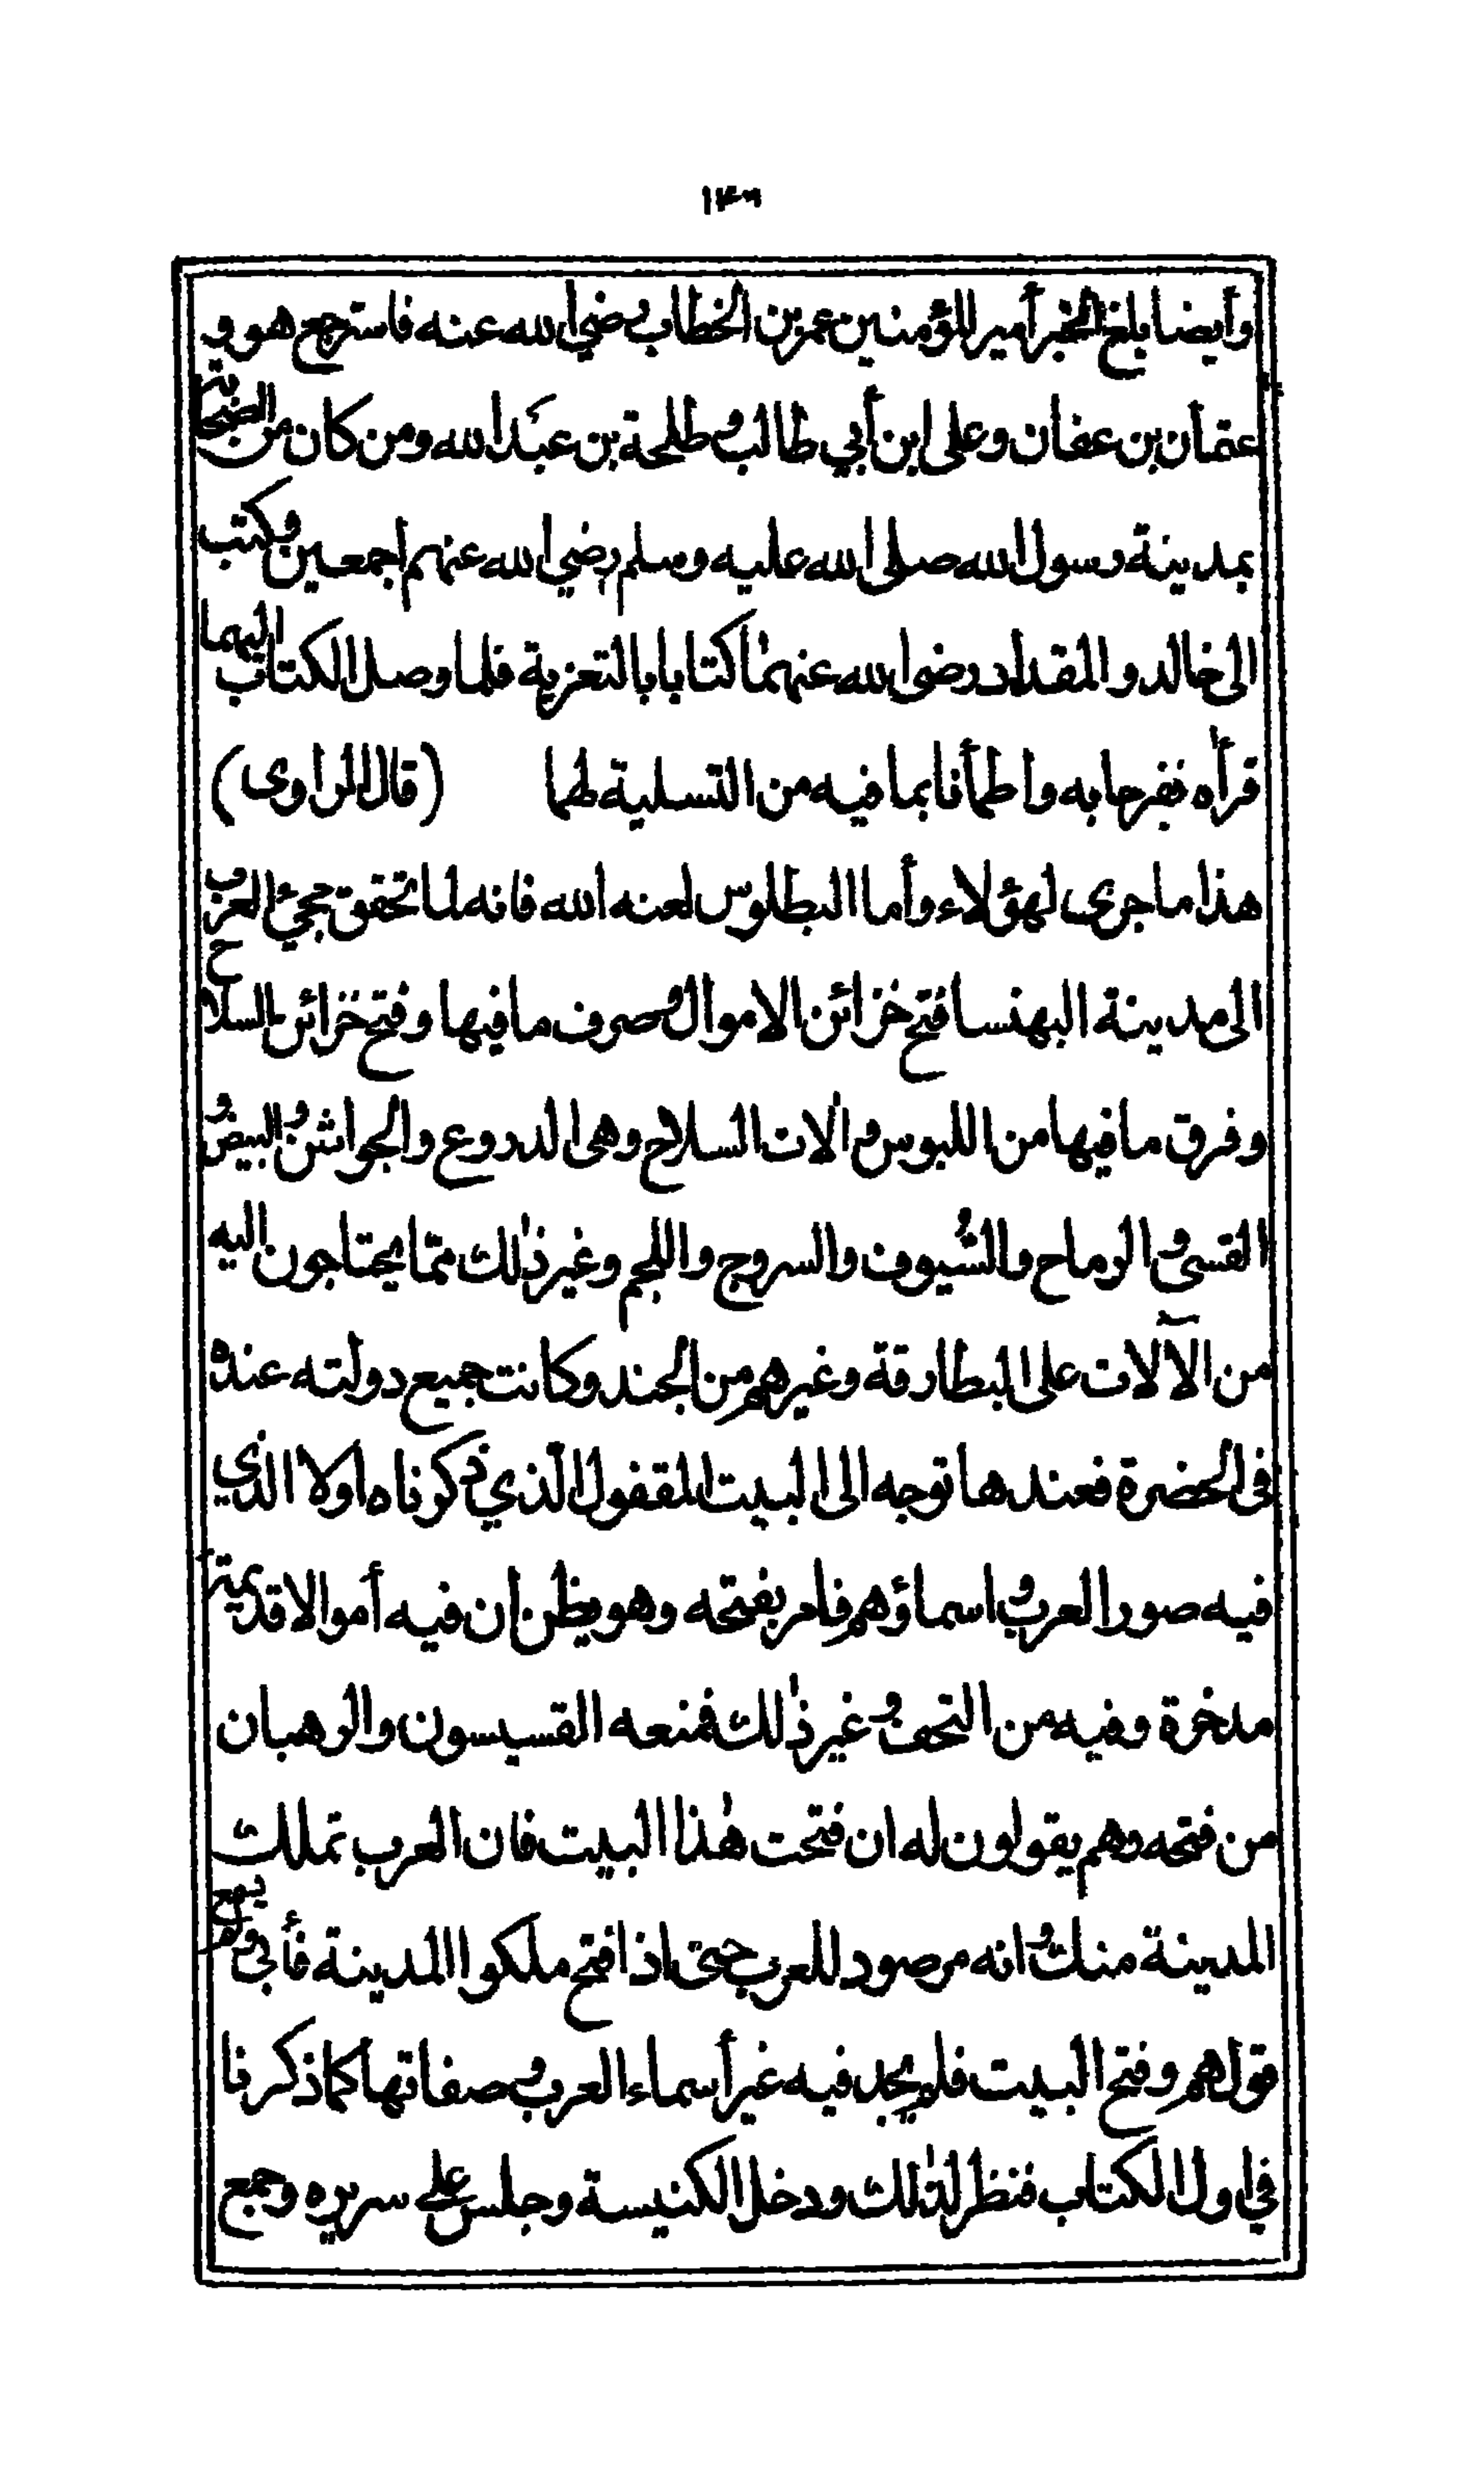 ١٤٦
وأيضا بلغ الخبر أمير المؤمنين عمر بن الخطاب رضي الله عنه فاسترجع هو و
عثمان بن عفان وعلى ابن أبي طالب وطلحة بن عبد الله ومن كان من الصحابة
بمدينة رسول الله صلى الله عليه وسلم رضي الله عنهم اجمعين وكتب
الى خالد والمقداد رضى الله عنهما كتابا بالتعزية فلما وصل الكتاب اليهما
قرأاه ففرحا به واطمأنا بما فيه من التسلية لهما (قال الراوى)
هذا ما جرى لهؤلاء وأما البطلوس لعنه الله فانه لما تحقق مجئ العرب
الى مدينة البهنسا فتح خزائن الاموال وصرف ما فيها وفتح خزائن السلاح
وفرق ما فيها من اللبوس والات السلاح وهى الدروع والجواشن والبيض و
القسى والرماح والسيوف والسروج واللجم وغير ذٰلك ممّا يحتاجون اليه
من الآلات على البطارقة وغيرهم من الجند وكانت جميع دولته عنده
فى الحضرة فعندها توجه الى البيت المقفول الّذي ذكرناه اولا الذي
فيه صور العرب واسماؤهم فامر بفتحه وهو يظن ان فيه أموالا قديمة
مدخرة وفيه من التحف وغير ذٰلك فمنعه القسيسون والرهبان
من فتحه وهم يقولون له ان فتحت هٰذا البيت فان العرب تملك
المدينة منك وانه مرصود للعرب حتى اذا فتح ملكوا المدينة فأبى ولم يسمع
قولهم وفتح البيت فلم يجد فيه غير أسماء العرب وصفاتها كما ذكرنا
في اول الكتاب فنظر لذٰلك ودخل الكنيسة وجلس على سريره وجمع